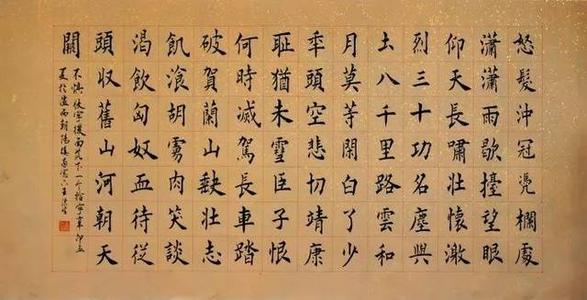 怒髮沖冠凴欄處
瀟瀟雨歇擡望眼
仰天長嘯壯懷激
烈三十功名塵與
土八千里路雲和
月莫等閑白了少
年頭空悲切靖康
耻猶未雪臣子恨
何時滅駕長車踏
破賀蘭山缺壯志
飢飡胡虜肉笑談
渴飲匈奴血待從
頭收舊山河朝天
闕
不慎佚字後面